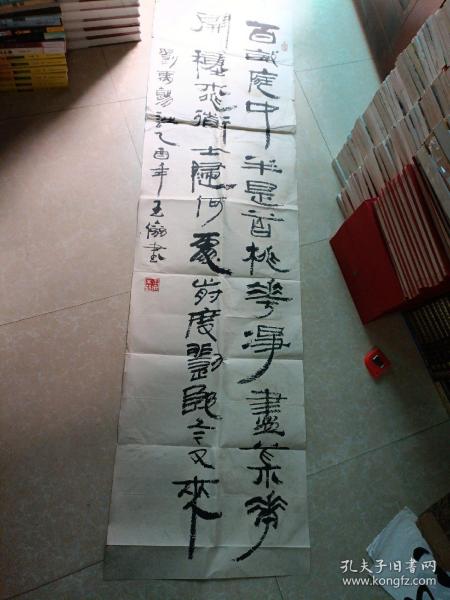 百畝庭中半是苔桃花淨盡菜花
開種桃道士歸何處前度劉郎今又來
劉禹錫詩乙酉年王書
孔夫子旧书网
www.kongfz.com